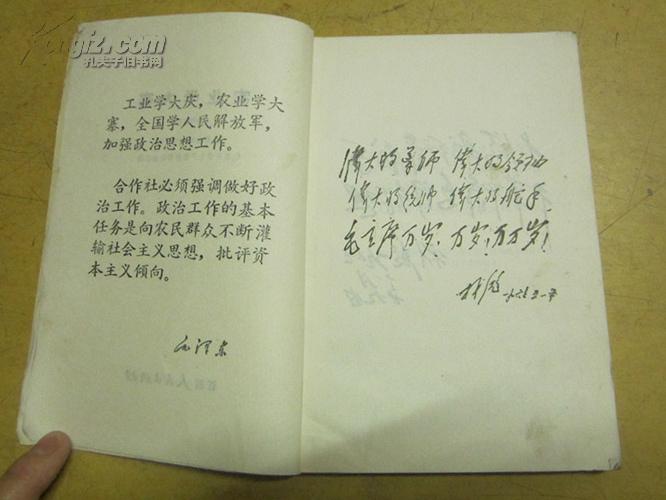 Kongfz.com
孔夫子旧书网
工业学大庆，农业学大
寨，全国学人民解放军，
加强政治思想工作。
合作社必须强调做好政
治工作。政治工作的基本
任务是向农民群众不断灌
输社会主义思想，批评资
本主义倾向。
毛泽东
偉大的导师 偉大的领袖
偉大的统帅 偉大的舵手
毛主席万岁！万岁！万万岁！
林彪